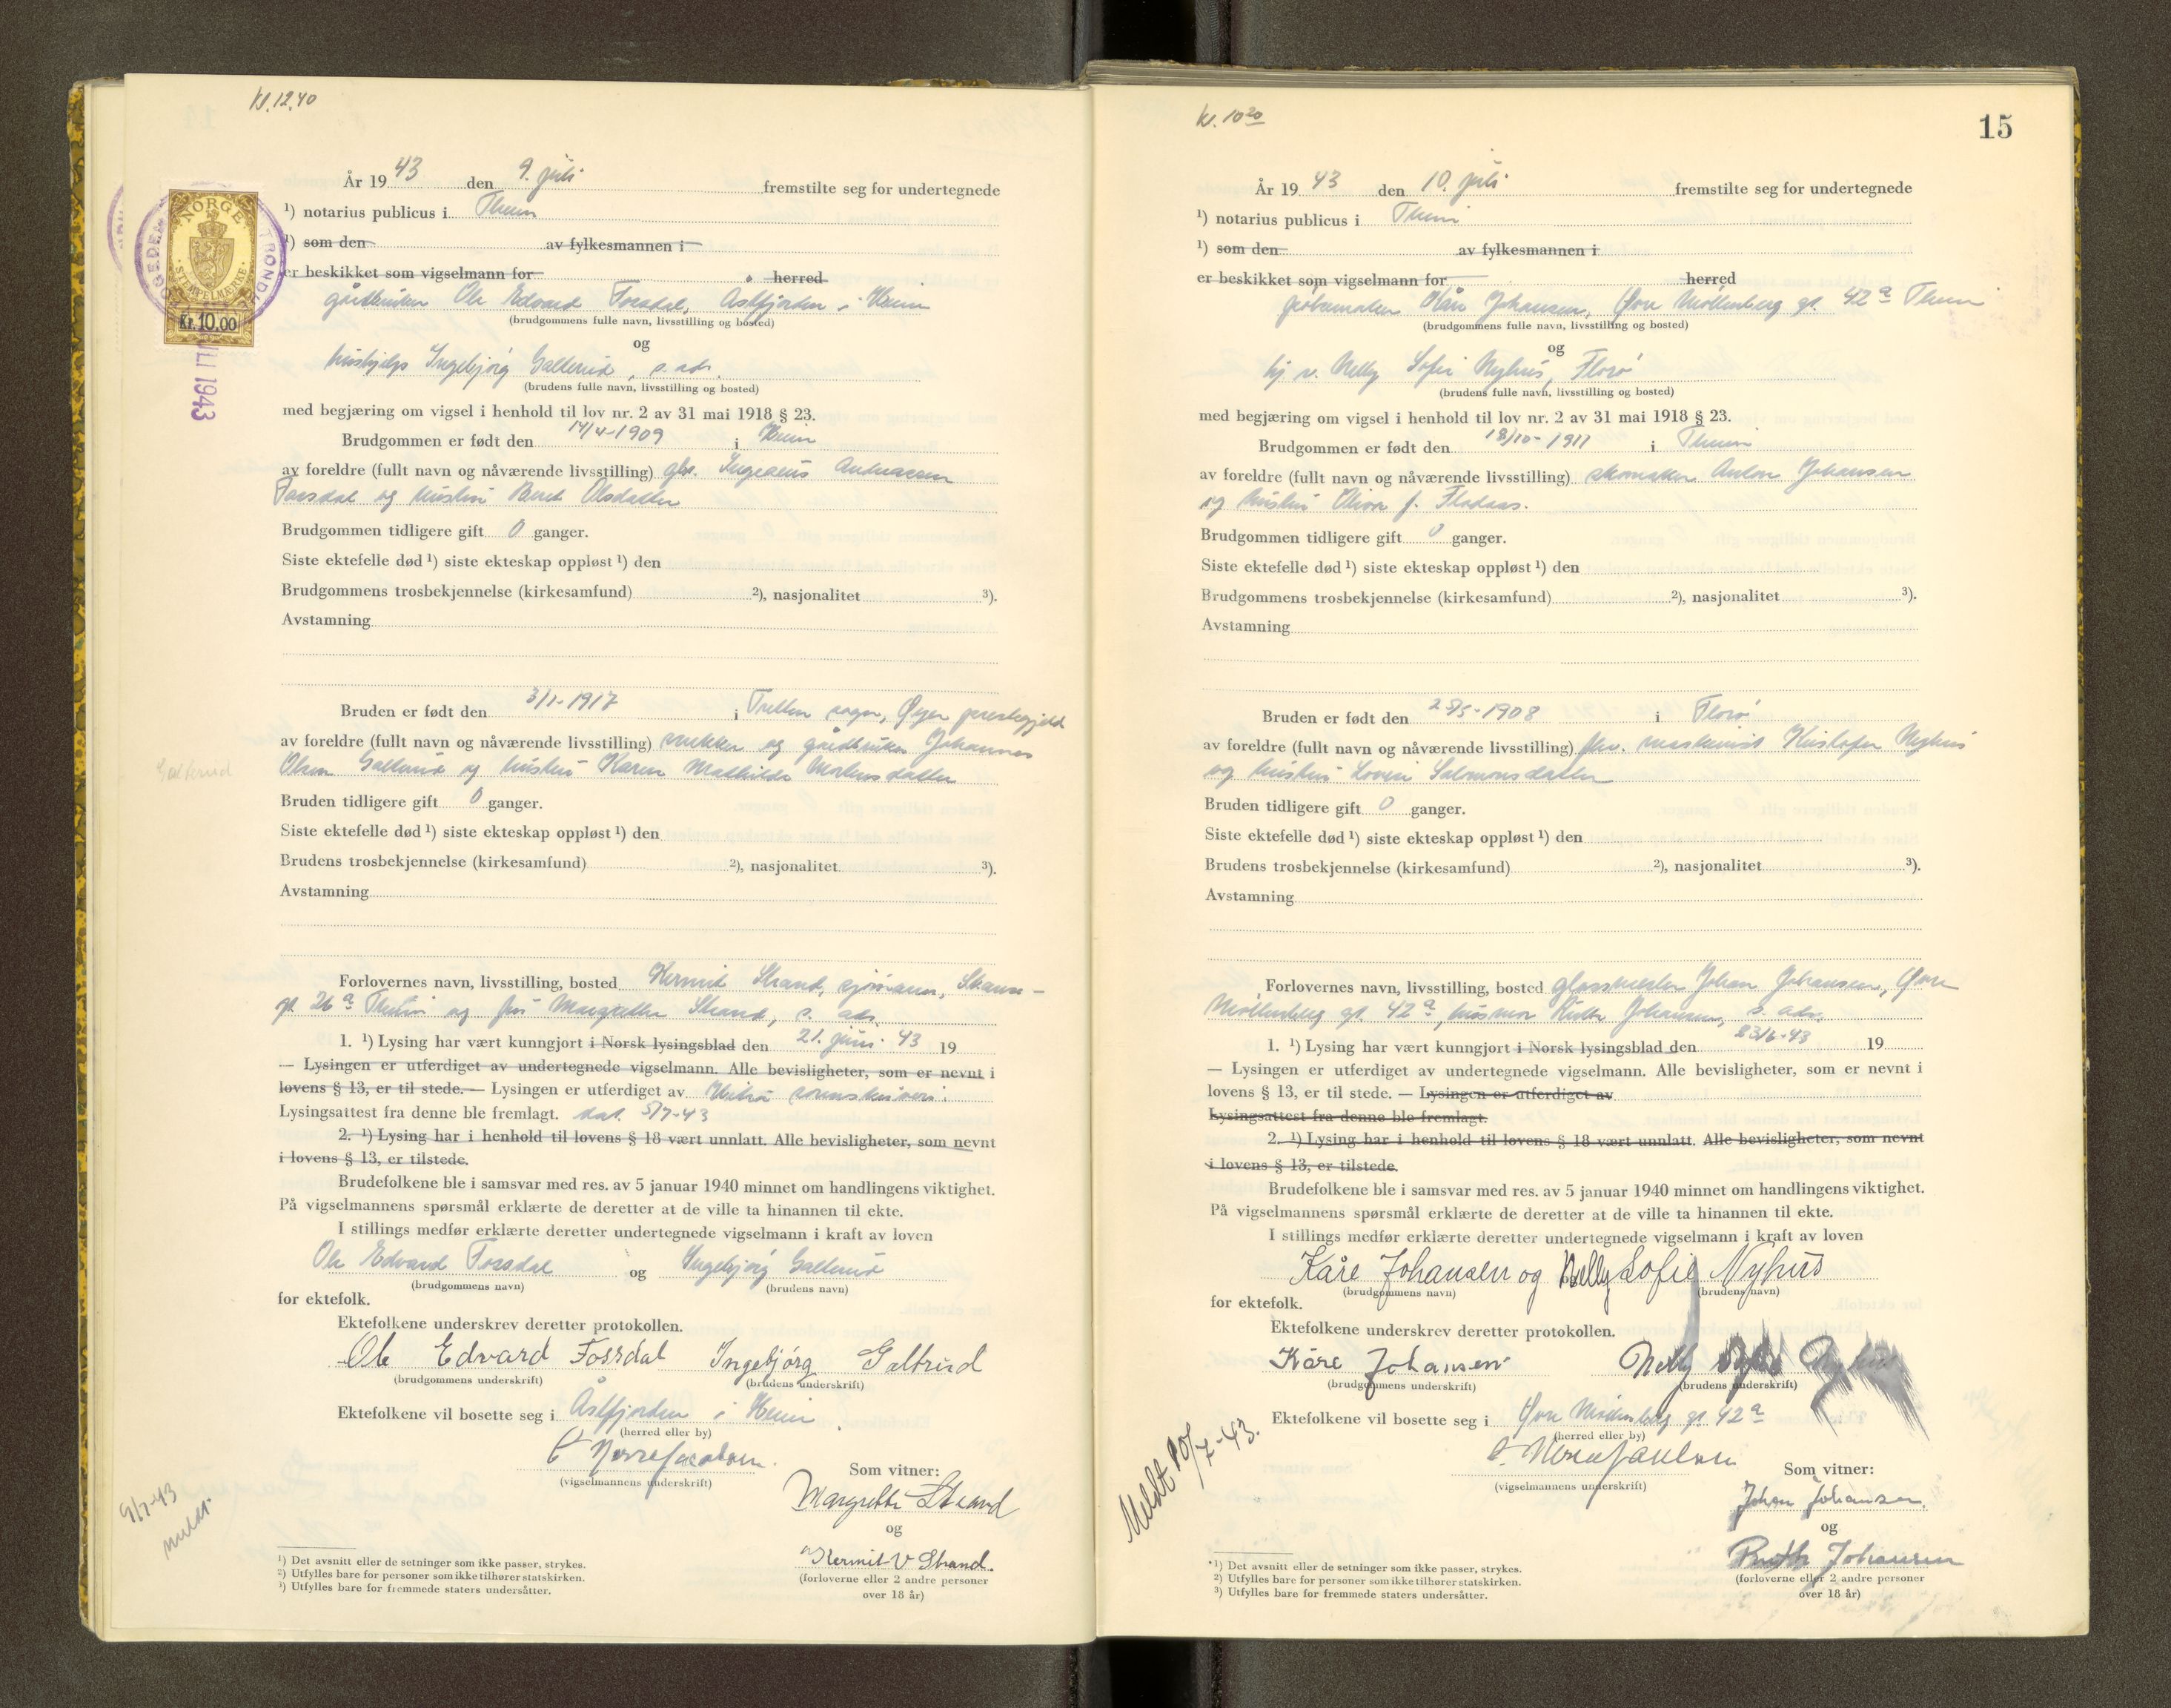 Kl. 12.40
NORGE
STEMPELMERKE
Kr. 10.00
1943
År 19 43 den 9. juli fremstilte seg for undertegnede
¹) notarius publicus i Thm
¹) som den av fylkesmannen i
er beskikket som vigselmann for herred
gårdbruker Ole Edvard Fossdal, Astfjorden i Heim
(brudgommens fulle navn, livsstilling og bosted)
og
hushjelp Ingebjørg Galterud, s. adr.
(brudens fulle navn, livsstilling og bosted)
med begjæring om vigsel i henhold til lov nr. 2 av 31 mai 1918 § 23.
Brudgommen er født den 14/4-1909 i Heim
av foreldre (fullt navn og nåværende livsstilling) gbr. Andreassen
Fossdal og hustru Beret Olsdatter
Brudgommen tidligere gift 0 ganger.
Siste ektefelle død ¹) siste ekteskap oppløst ¹) den
Brudgommens trosbekjennelse (kirkesamfund) ²), nasjonalitet ³).
Avstamning
Bruden er født den 3/1-1917 i Tretten sogn, Øyer prestegjeld
av foreldre (fullt navn og nåværende livsstilling) snekker og gårdbruker Johannes
Galterud
Olsen Galterud og hustru Karen Mathilde
Bruden tidligere gift 0 ganger.
Siste ektefelle død ¹) siste ekteskap oppløst ¹) den
Brudens trosbekjennelse (kirkesamfund) ²), nasjonalitet ³).
Avstamning
Forlovernes navn, livsstilling, bosted Kermit Strand, sjømann,
gt. 26 a og fru Margrethe Strand, s. adr.
1. ¹) Lysing har vært kunngjort i Norsk lysingsblad den 21. juni 43 19
— Lysingen er utferdiget av undertegnede vigselmann. Alle bevisligheter, som er nevnt i
lovens § 13, er til stede. — Lysingen er utferdiget av Hitra sorenskriveri.
Lysingsattest fra denne ble fremlagt. dat. 5/7-43
2. ¹) Lysing har i henhold til lovens § 18 vært unnlatt. Alle bevisligheter, som nevnt
i lovens § 13, er tilstede.
Brudefolkene ble i samsvar med res. av 5 januar 1940 minnet om handlingens viktighet.
På vigselmannens spørsmål erklærte de deretter at de ville ta hinannen til ekte.
I stillings medfør erklærte deretter undertegnede vigselmann i kraft av loven
Ole Edvard Fossdal og Ingebjørg Galterud
(brudgommens navn) (brudens navn)
for ektefolk.
Ektefolkene underskrev deretter protokollen.
Ole Edvard Fossdal Ingebjørg Galtrud
(brudgommens underskrift) (brudens underskrift)
Ektefolkene vil bosette seg i Åstfjorden i Heim
(herred eller by)
(vigselmannens underskrift)
Som vitner:
Margrethe Strand
og
Kermit V Strand.
(forloverne eller 2 andre personer
over 18 år)
9/7-43
meldt.
¹) Det avsnitt eller de setninger som ikke passer, strykes.
²) Utfylles bare for personer som ikke tilhører statskirken.
³) Utfylles bare for fremmede staters undersåtter.
kl. 10 20
15
År 19 43 den 10. juli fremstilte seg for undertegnede
¹) notarius publicus i Thm
¹) som den av fylkesmannen i
er beskikket som vigselmann for herred
Kåre Johansen, Øvre Møllenberg gt. 42 a Thm
(brudgommens fulle navn, livsstilling og bosted)
og
Nelly Sofie Nyhus, Florø
(brudens fulle navn, livsstilling og bosted)
med begjæring om vigsel i henhold til lov nr. 2 av 31 mai 1918 § 23.
Brudgommen er født den 18/10-1911 i Thm
av foreldre (fullt navn og nåværende livsstilling) skomaker Anton Johansen
og hustru f. Flodaas.
Brudgommen tidligere gift 0 ganger.
Siste ektefelle død ¹) siste ekteskap oppløst ¹) den
Brudgommens trosbekjennelse (kirkesamfund) ²), nasjonalitet ³).
Avstamning
Bruden er født den 25/5-1908 i Florø
av foreldre (fullt navn og nåværende livsstilling) fhv. maskinist Kristofer Nyhus
og hustru Salmonsdatter
Bruden tidligere gift 0 ganger.
Siste ektefelle død ¹) siste ekteskap oppløst ¹) den
Brudens trosbekjennelse (kirkesamfund) ²), nasjonalitet ³).
Avstamning
Forlovernes navn, livsstilling, bosted glassmester Johan Johansen, Øvre
Møllenberg gt. 42 a, husmor Ruth Johansen, s. adr.
1. ¹) Lysing har vært kunngjort i Norsk lysingsblad den 23/6-43 19
— Lysingen er utferdiget av undertegnede vigselmann. Alle bevisligheter, som er nevnt i
lovens § 13, er til stede. — Lysingen er utferdiget av
Lysingsattest fra denne ble fremlagt.
2. ¹) Lysing har i henhold til lovens § 18 vært unnlatt. Alle bevisligheter, som nevnt
i lovens § 13, er tilstede.
Brudefolkene ble i samsvar med res. av 5 januar 1940 minnet om handlingens viktighet.
På vigselmannens spørsmål erklærte de deretter at de ville ta hinannen til ekte.
I stillings medfør erklærte deretter undertegnede vigselmann i kraft av loven
Kåre Johansen og Nelly Sofie Nyhus
(brudgommens navn) (brudens navn)
for ektefolk.
Ektefolkene underskrev deretter protokollen.
Kåre Johansen Nelly Sofie Nyhus
(brudgommens underskrift) (brudens underskrift)
Ektefolkene vil bosette seg i Øvre Møllenberg gt. 42 a
(herred eller by)
(vigselmannens underskrift)
Som vitner:
Johan Johansen.
og
Ruth Johansen
(forloverne eller 2 andre personer
over 18 år)
Meldt 10/7-43.
¹) Det avsnitt eller de setninger som ikke passer, strykes.
²) Utfylles bare for personer som ikke tilhører statskirken.
³) Utfylles bare for fremmede staters undersåtter.